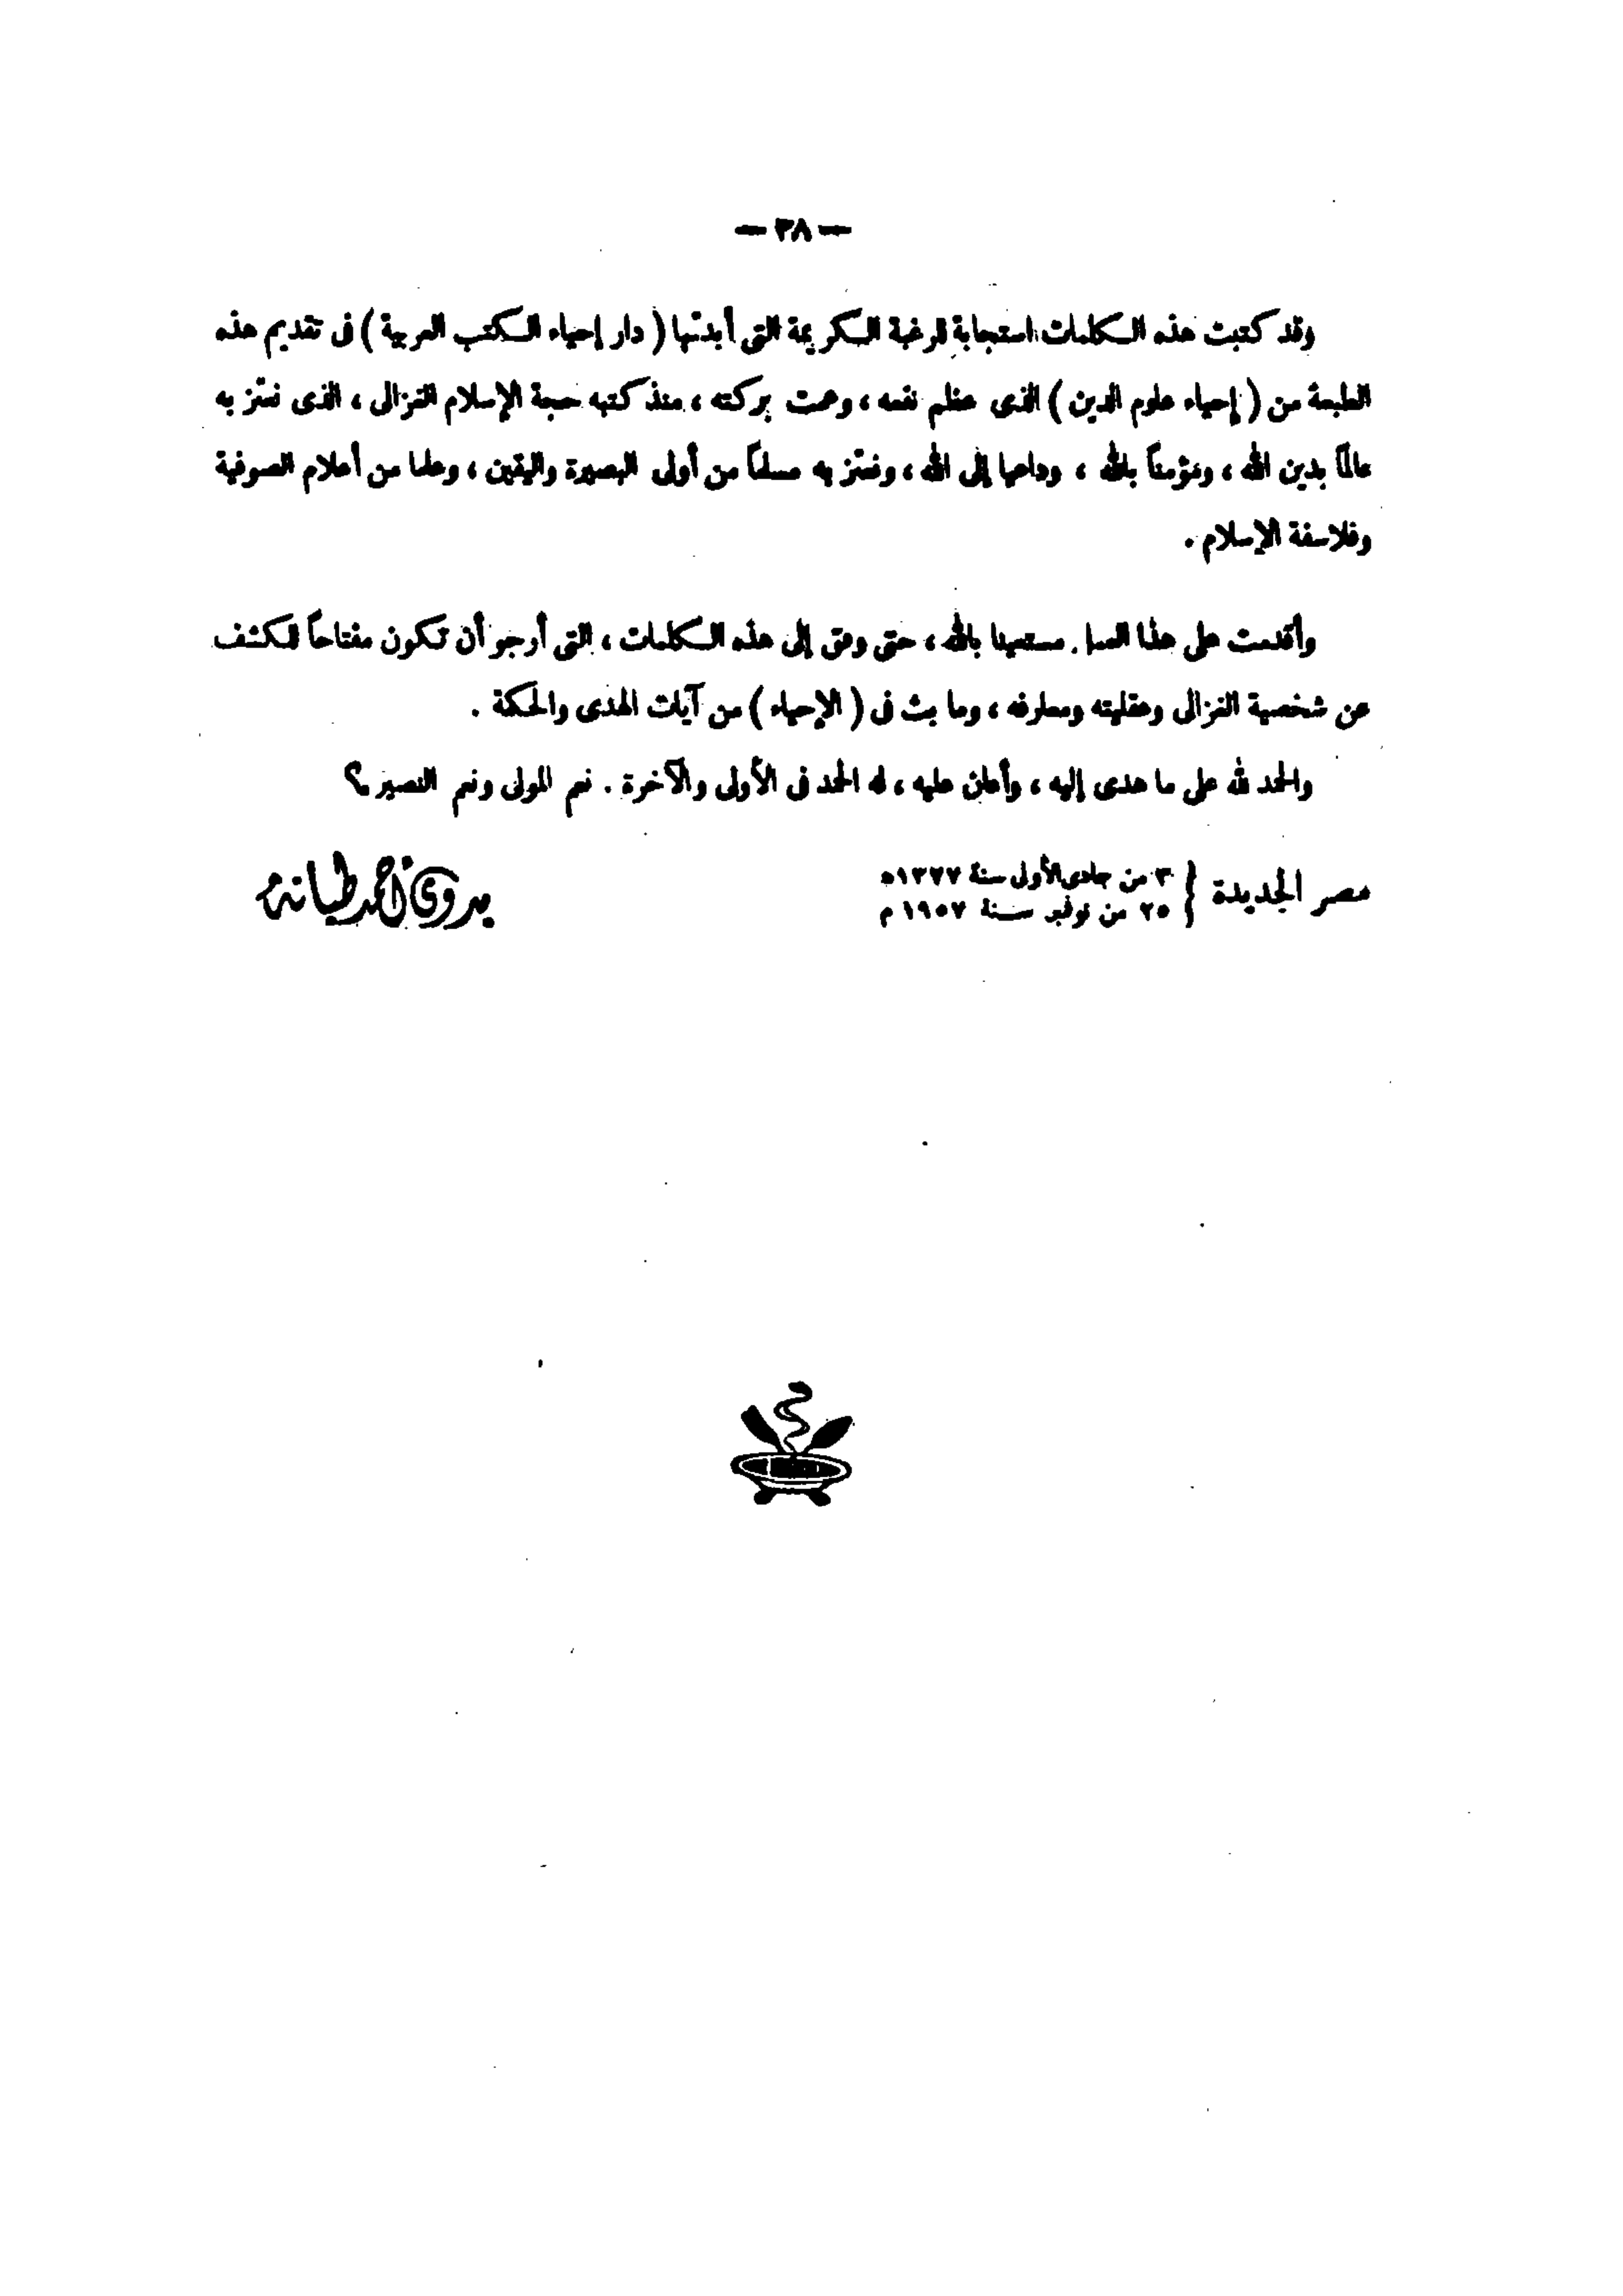 — ٣٨ —
وقد كتبت هذه الكلمات استجابة للرغبة الكريمة التى أبدتها ( دار إحياء الكتب العربية ) فى تقديم هذه
الطبعة من ( إحياء علوم الدين ) الذى عظم نفعه ، وعمت بركته ، منذ كتبه حجة الإسلام الغزالى ، الذى نعتز به
عالماً بدين الله ، ومؤمناً بالله ، وداعيا إلى الله ، ونعتز به مسلماً من أولى البصيرة واليقين ، وعلما من أعلام الصوفية
وفلاسفة الإسلام .
وأقدمت على هذا العمل مستعينا بالله ، حتى وفق إلى هذه الكلمات ، التى أرجو أن تكون مفتاحاً للكشف
عن شخصية الغزالى وعقليته ومعارفه ، وما بث فى ( الإحياء ) من آيات الهدى والحكمة .
والحمد لله على ما هدى إليه ، وأعان عليه ، له الحمد فى الأولى والآخرة . نعم المولى ونعم النصير ؟
مصر الجديدة { ٣ من جمادى الأولى سنة ١٣٧٧ ه
٢٥ من نوفمبر سنة ١٩٥٧ م
بدوى أحمد طبانه